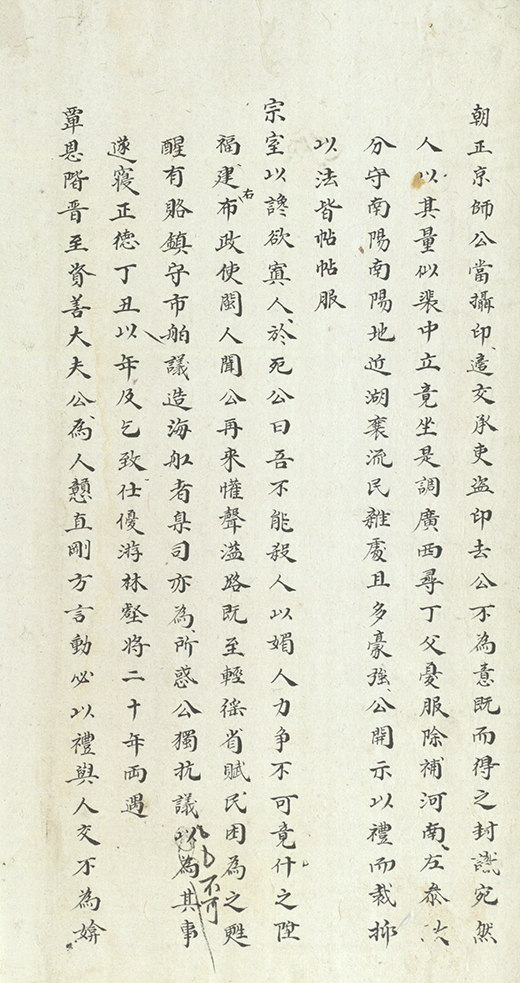 朝正京師公當攝印適交承吏盗印去公不為意既而得之封識宛然
人以其量似裴中立竟坐是調廣西尋丁父憂服除補河南左叅政
分守南陽南陽地近湖襄流民雜處且多豪強公開示以禮而裁抑
以法皆帖帖服
宗室以讒欲寘人於死公曰吾不能殺人以媚人力争不可竟什之陞
福建右布政使閩人聞公再來懽聲溢路既至輕徭省賦民困為之甦
醒有賂鎮守市舶議造海舡者臬司亦為所惑公獨抗議以為不可其事
遂寢正德丁丑以年及乞致仕優游林壑將二十年両遇
覃恩階晋至資善大夫公為人戇直剛方言動必以禮與人交不為媕